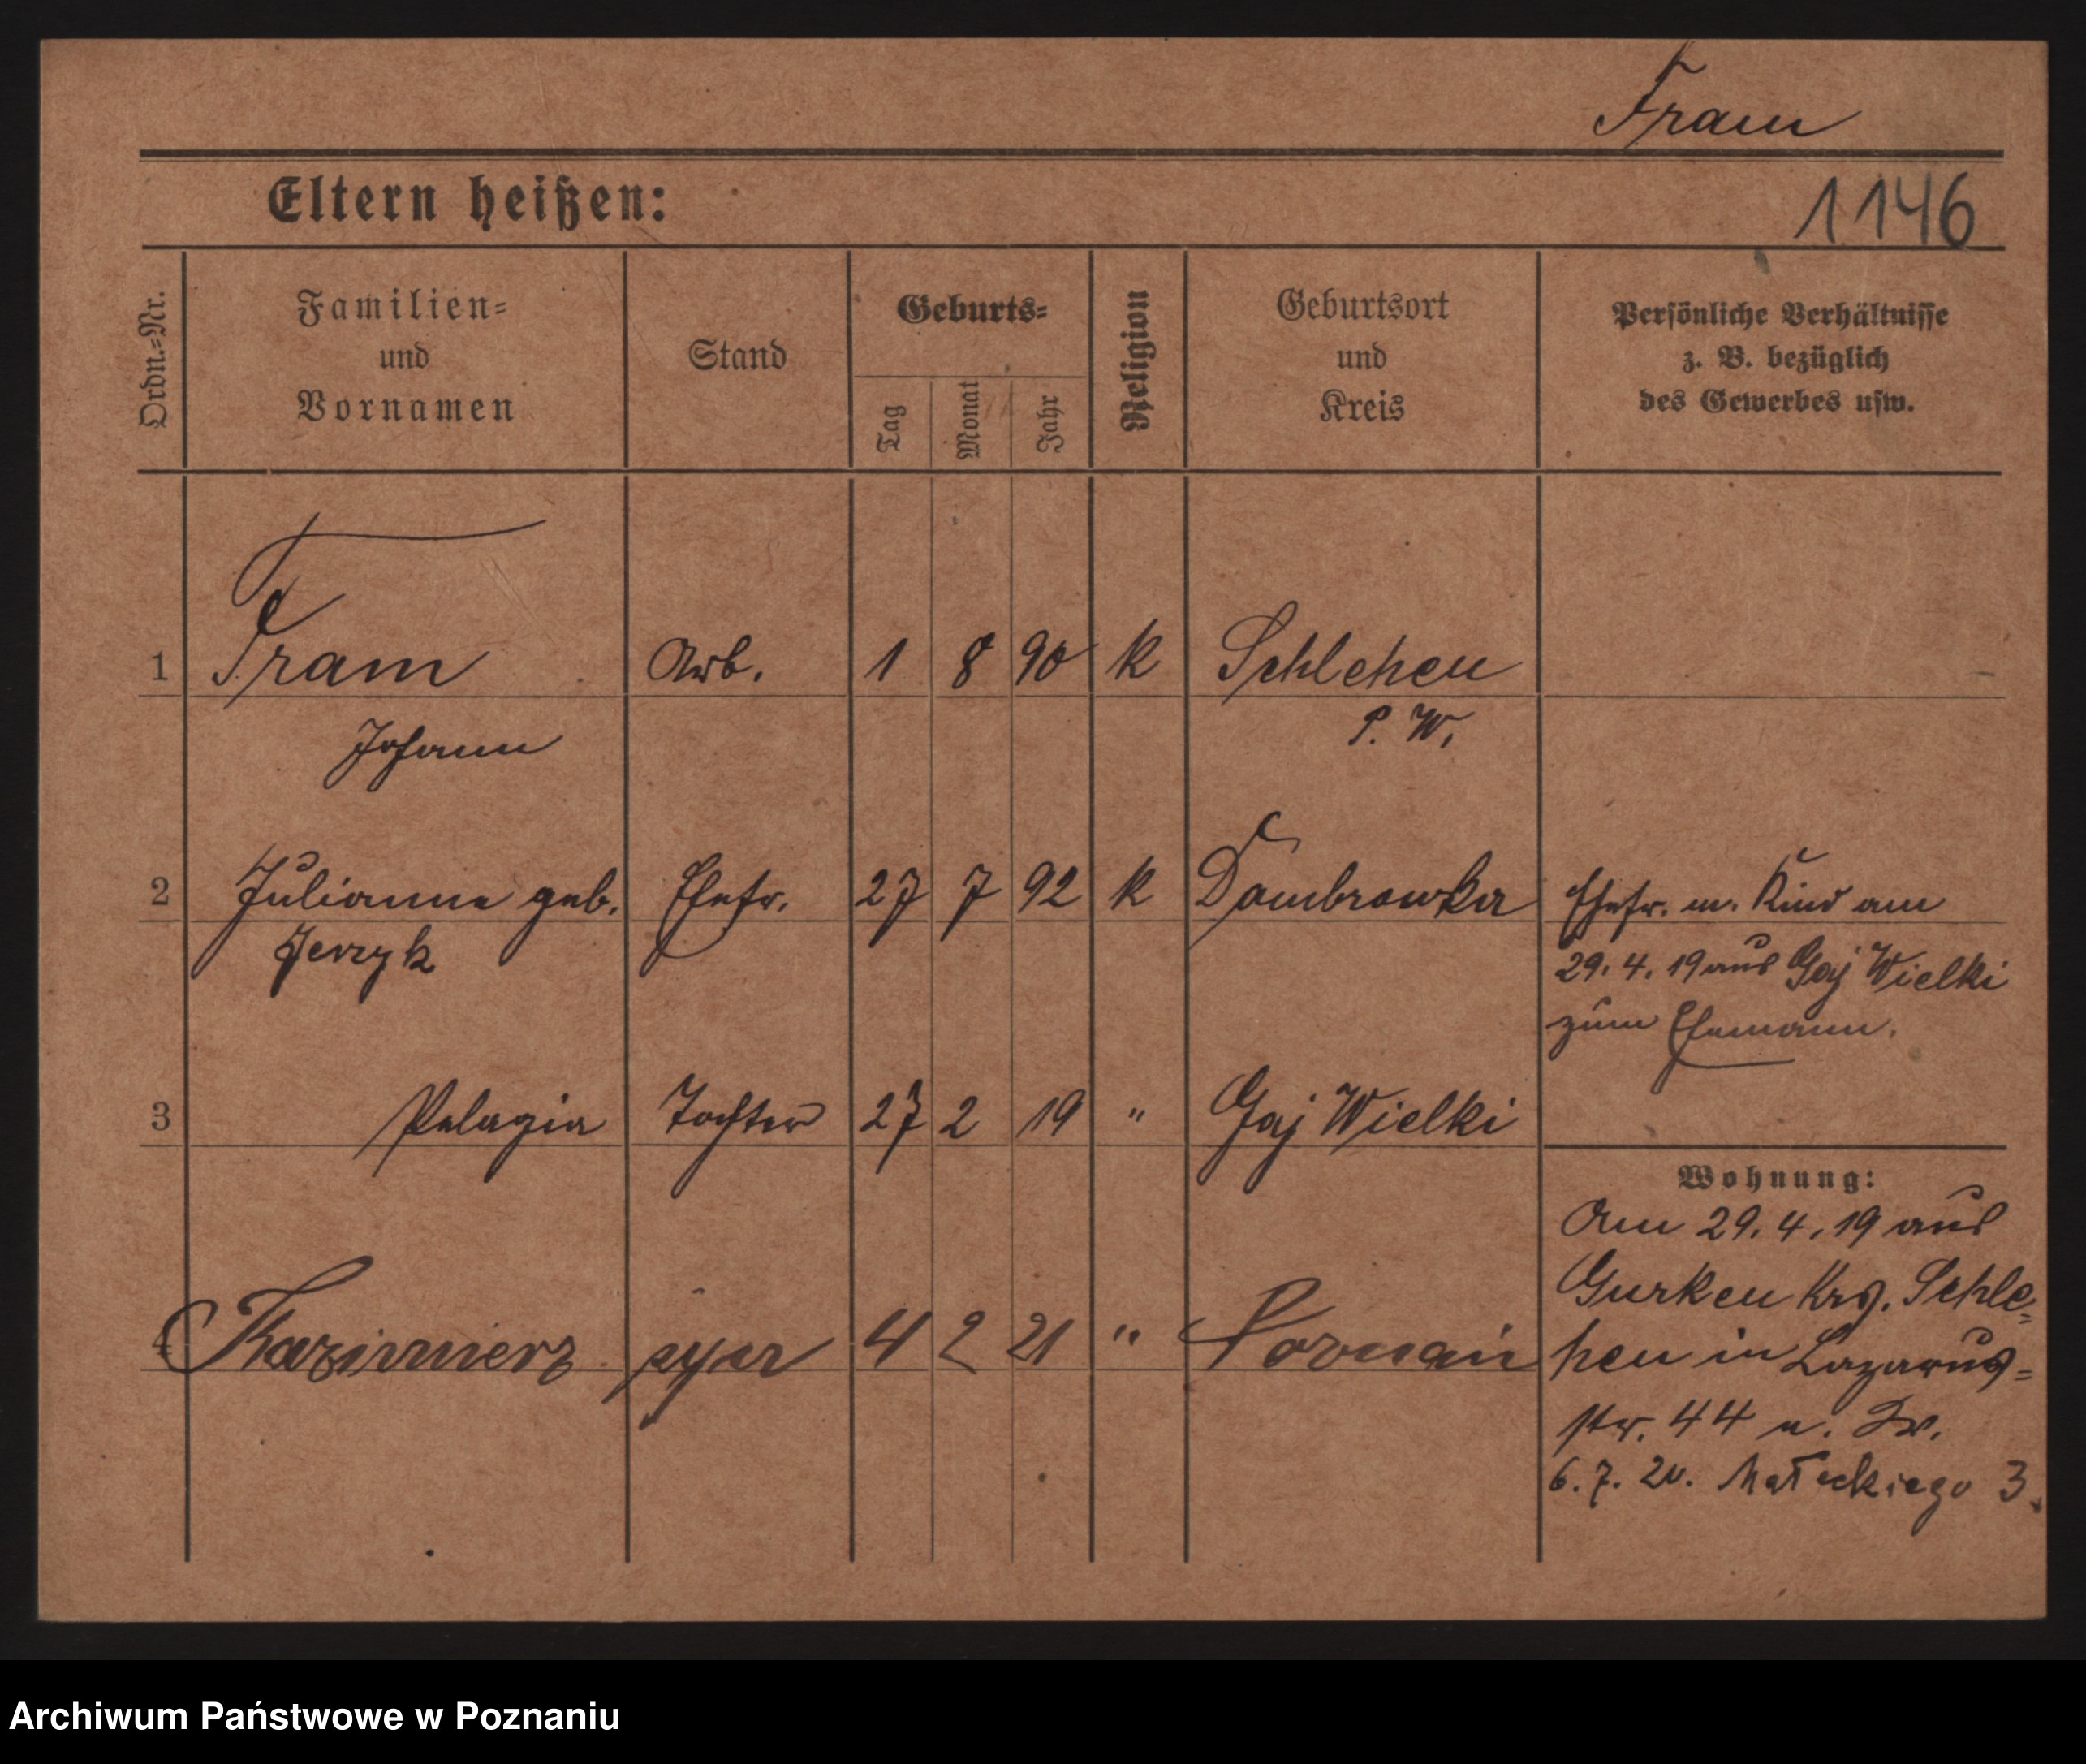 Fram
Eltern heißen:
1146
Ordn.=Nr.
Familien=
und
Vornamen
Stand
Geburts=
Tag
Monat
Jahr
Religion
Geburtsort
und
Kreis
Persönliche Verhältnisse
z. B. bezüglich
des Gewerbes usw.
1 Fram Arb. 1 8 90 k Schlehen
Johann P. W.
2 Julianna geb. Ehefr. 27 7 92 k Dombrowka Ehefr. m. Kind am
Jerzyk 29. 4. 19 aus Gaj Wielki
zum Ehemann.
3 Pelagia Tochter 27 2 19 " Gaj Wielki
Wohnung:
Am 29. 4. 19 aus
Gurken Krs. Schle=
4 Kazimierz 4 2 21 " Poznań hen in Lazarus=
str. 44 b.
6. 7. 20. Małeckiego 3.
Archiwum Państwowe w Poznaniu